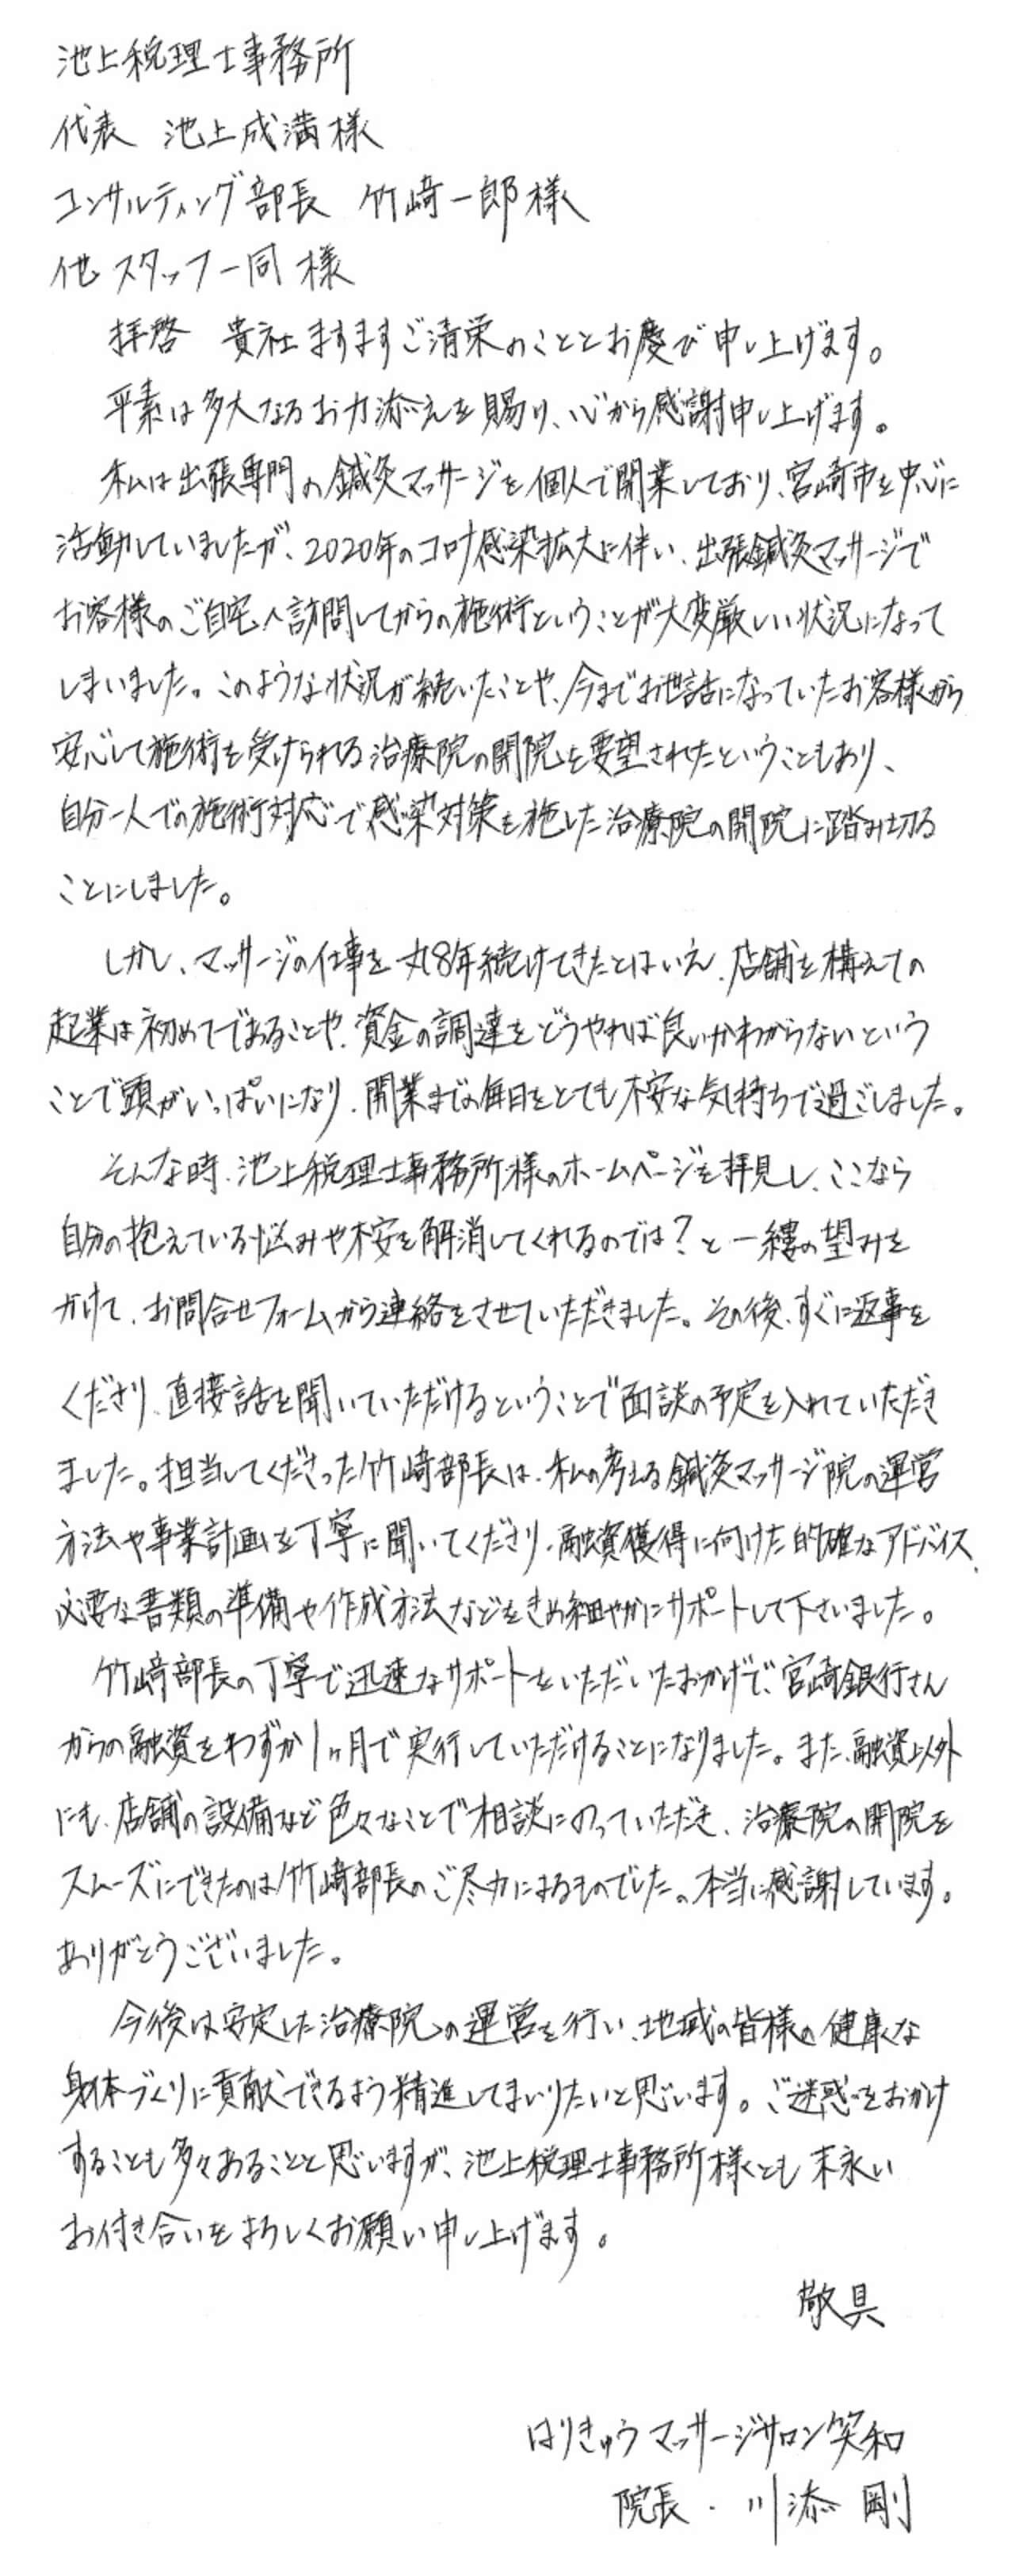 池上税理士事務所
代表 池上成満様
コンサルティング部長 竹﨑一郎様
他 スタッフ一同 様
拝啓 貴社ますますご清栄のこととお慶び申し上げます。
平素は多大なるお力添えを賜り、心から感謝申し上げます。
私は出張専門の鍼灸マッサージを個人で開業しており、宮崎市を中心に
活動していましたが、2020年のコロナ感染拡大に伴い、出張鍼灸マッサージで
お客様のご自宅へ訪問してからの施術ということが大変厳しい状況になって
しまいました。このような状況が続いたことや、今までお世話になっていたお客様から
安心して施術を受けられる治療院の開院を要望されたということもあり、
自分一人での施術対応で感染対策を施した治療院の開院に踏み切る
ことにしました。
しかし、マッサージの仕事を丸8年続けてきたとはいえ、店舗を構えての
起業は初めてであることや、資金の調達をどうやれば良いかわからないという
ことで頭がいっぱいになり、開業までの毎日をとても不安な気持ちで過ごしました。
そんな時、池上税理士事務所様のホームページを拝見し、ここなら
自分の抱えている悩みや不安を解消してくれるのでは？と一縷の望みを
かけて、お問合せフォームから連絡をさせていただきました。その後、すぐに返事を
くださり、直接話を聞いていただけるということで面談の予定を入れていただき
ました。担当してくださった竹﨑部長は、私の考える鍼灸マッサージ院の運営
方法や事業計画を丁寧に聞いてくださり、融資獲得に向けた的確なアドバイス、
必要な書類の準備や作成方法などをきめ細やかにサポートして下さいました。
竹﨑部長の丁寧で迅速なサポートをいただいたおかげで、宮崎銀行さん
からの融資をわずか1ヶ月で実行していただけることになりました。また、融資以外
にも、店舗の設備など色々なことで相談にのっていただき、治療院の開院を
スムーズにできたのは竹﨑部長のご尽力によるものでした。本当に感謝しています。
ありがとうございました。
今後は安定した治療院の運営を行い、地域の皆様の健康な
身体づくりに貢献できるよう精進してまいりたいと思います。ご迷惑をおかけ
することも多々あることと思いますが、池上税理士事務所様とも末永い
お付き合いをよろしくお願い申し上げます。
敬具
はりきゅうマッサージサロン笑和
院長・川添 剛